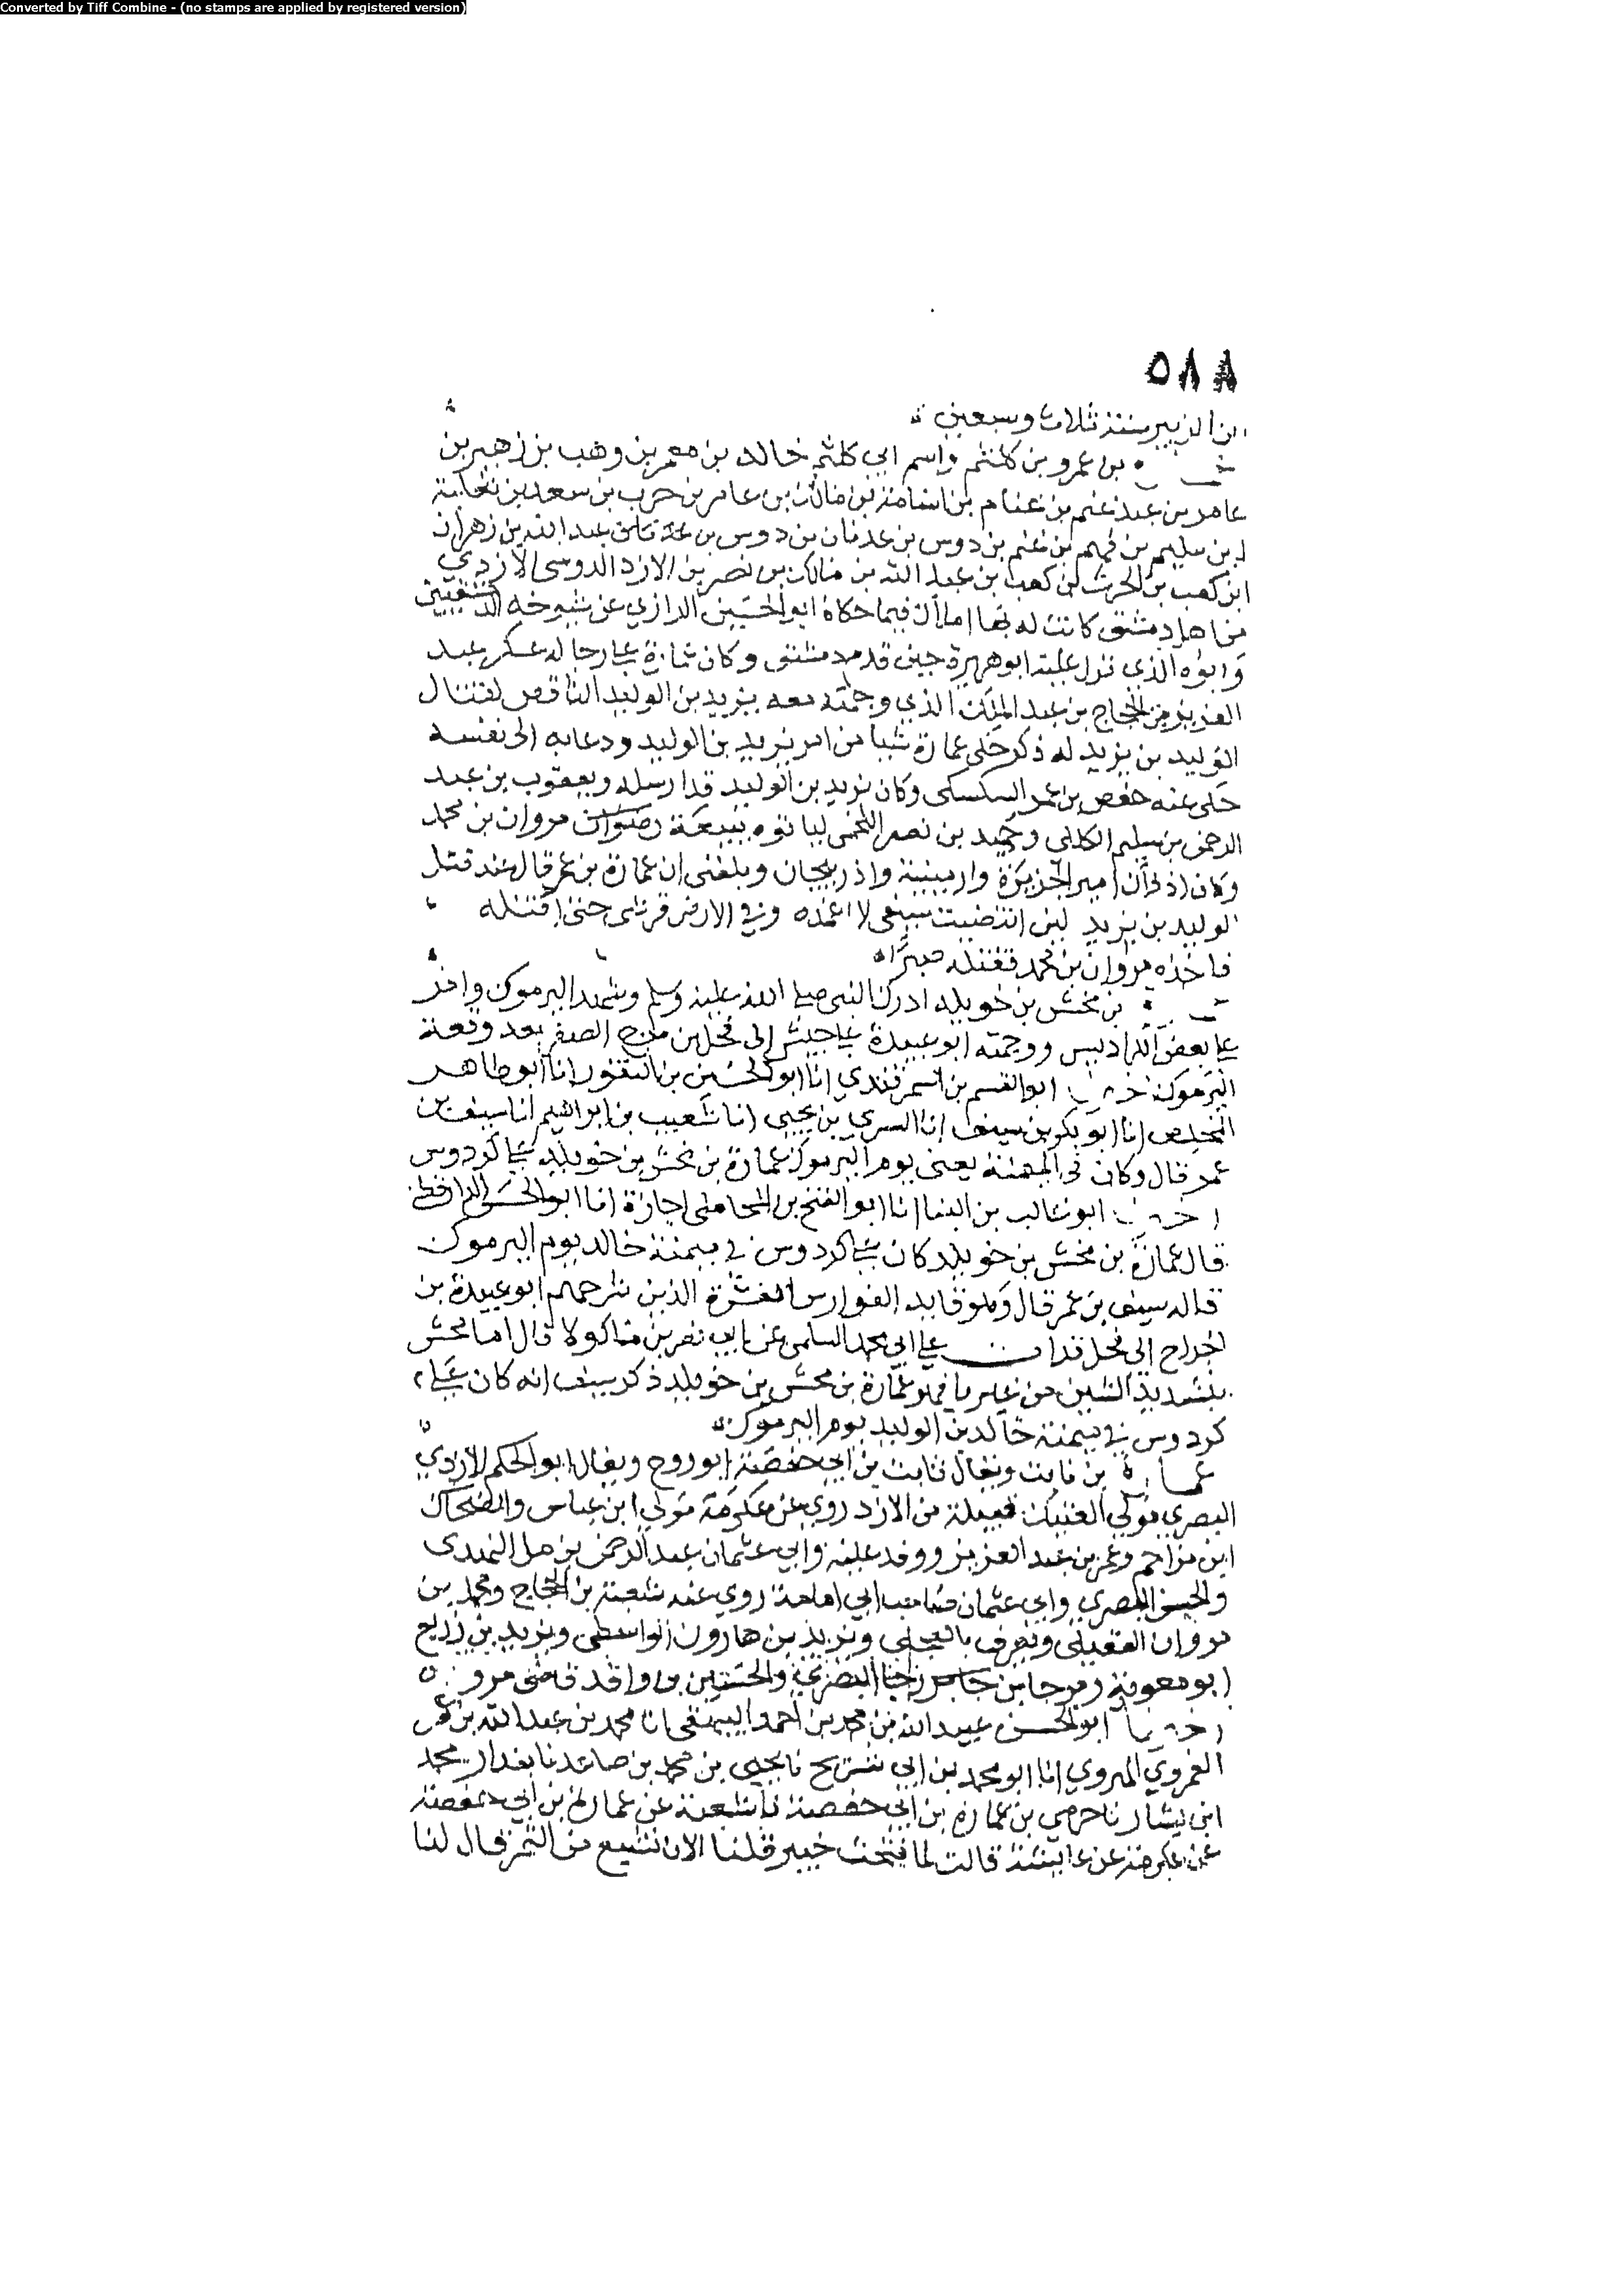 Converted by Tiff Combine - (no stamps are applied by registered version)
٥٨٨
ابن الزبير سنة ثلاث وسبعين
بن عمرو بن كلثم واسم ابي كلثم خالد بن معمر بن وهب بن زهير بن
عامر بن عبد غنم بن غنام بن اسامة بن مالك بن عامر بن حرب بن سعد بن ثعلبة
ابن سليم بن فهم بن غنم بن دوس بن عدنان بن دوس بن عبد الله بن زهران
ابن كعب بن الحرث بن كعب بن عبد الله بن مالك بن نصر بن الازد الدوسي الازدي
من اهل دمشق كانت له بها املاك فيما حكاه ابو الحسين الرازي عن شيوخه الدمشقيين
وابوه الذي نزل عليه ابو هريرة حين قدم دمشق وكان عمارة على رجاله عسكر عبد
العزيز بن الحجاج بن عبد الملك الذي وجهه معه يزيد بن الوليد الناقص لقتال
الوليد بن يزيد له ذكر حكى عمارة شيا من امر يزيد بن الوليد ودعايه الى نفسه
حكى عنه حفص بن عمر السكسكي وكان يزيد بن الوليد قد ارسله ويعقوب بن عبد
الرحمن بن سليم الكلبي وحميد بن نصر اللخمي لياتوه ببيعة مروان بن محمد
وكان اذ ذاك امير الجزيرة وارمينية واذربيجان وبلغني ان عمارة بن عمر قال عند قتل
الوليد بن يزيد لين انتضيت سيفي لا اغمده وفي الارض قرشي حتى اقتله
فاخذه مروان بن محمد فقتله صبرا
بن مخش بن خويلد ادرك النبي صلى الله عليه وسلم وشهد اليرموك وامر
على بعض الكراديس ووجهه ابو عبيدة على جيش الى فحل من مرج الصفر بعد وقعة
اليرموك اخبرنا ابو القسم بن السمرقندي انا ابو الحسين بن النقور انا ابو طاهر
المخلص انا ابو بكر بن سيف انا السري بن يحيى انا شعيب بن ابراهيم انا سيف بن
عمر قال وكان في الميمنة يعني يوم اليرموك عمارة بن مخش بن خويلد على كردوس
اخبرنا ابو غالب بن البنا انا ابو الفتح بن المحاملي اجازة انا ابو الحسن الدارقطني
قال عمارة بن مخش بن خويلد كان على كردوس في ميمنة خالد يوم اليرموك
قاله سيف بن عمر قال وهو قايد الفوارس العشرة الذين سرحهم ابو عبيدة بن
الجراح الى فحل قرات على ابي محمد السلمي عن ابي نصر بن ماكولا قال اما مخش
بتشديد الشين من غير يا فهو عمارة بن مخش بن خويلد ذكر سيف انه كان على
كردوس في ميمنة خالد بن الوليد يوم اليرموك
عمارة بن نابت ويقال ثابت بن ابي حفصة ابو روح ويقال ابو الحكم الازدي
البصري مولى العتيك قبيلة من الازد روى عن عكرمة مولى ابن عباس والضحاك
ابن مزاحم وعمر بن عبد العزيز ووفد عليه وابي عثمان عبد الرحمن بن مل النهدي
والحسن البصري وابي عثمان صاحب ابي امامة روى عنه شعبة بن الحجاج ومحمد بن
مروان العقيلي ويعرف بالعجلي ويزيد بن هارون الواسطي ويزيد بن زريع
ابو معوية ومرجا بن رجا البصري والحسين بن واقد قاضي مرو
اخبرنا ابو الحسن عبيد الله بن محمد بن احمد البيهقي انا محمد بن عبد الله بن عمر
العمروي الهروي انا ابو محمد بن ابي شريح نا يحيى بن محمد بن صاعد نا بندار محمد
ابن بشار نا حرمي بن عمارة بن ابي حفصة نا شعبة عن عمارة بن ابي حفصة
عن عكرمة عن عايشة قالت لما فتحت خيبر قلنا الان نشبع من التمر قال لنا